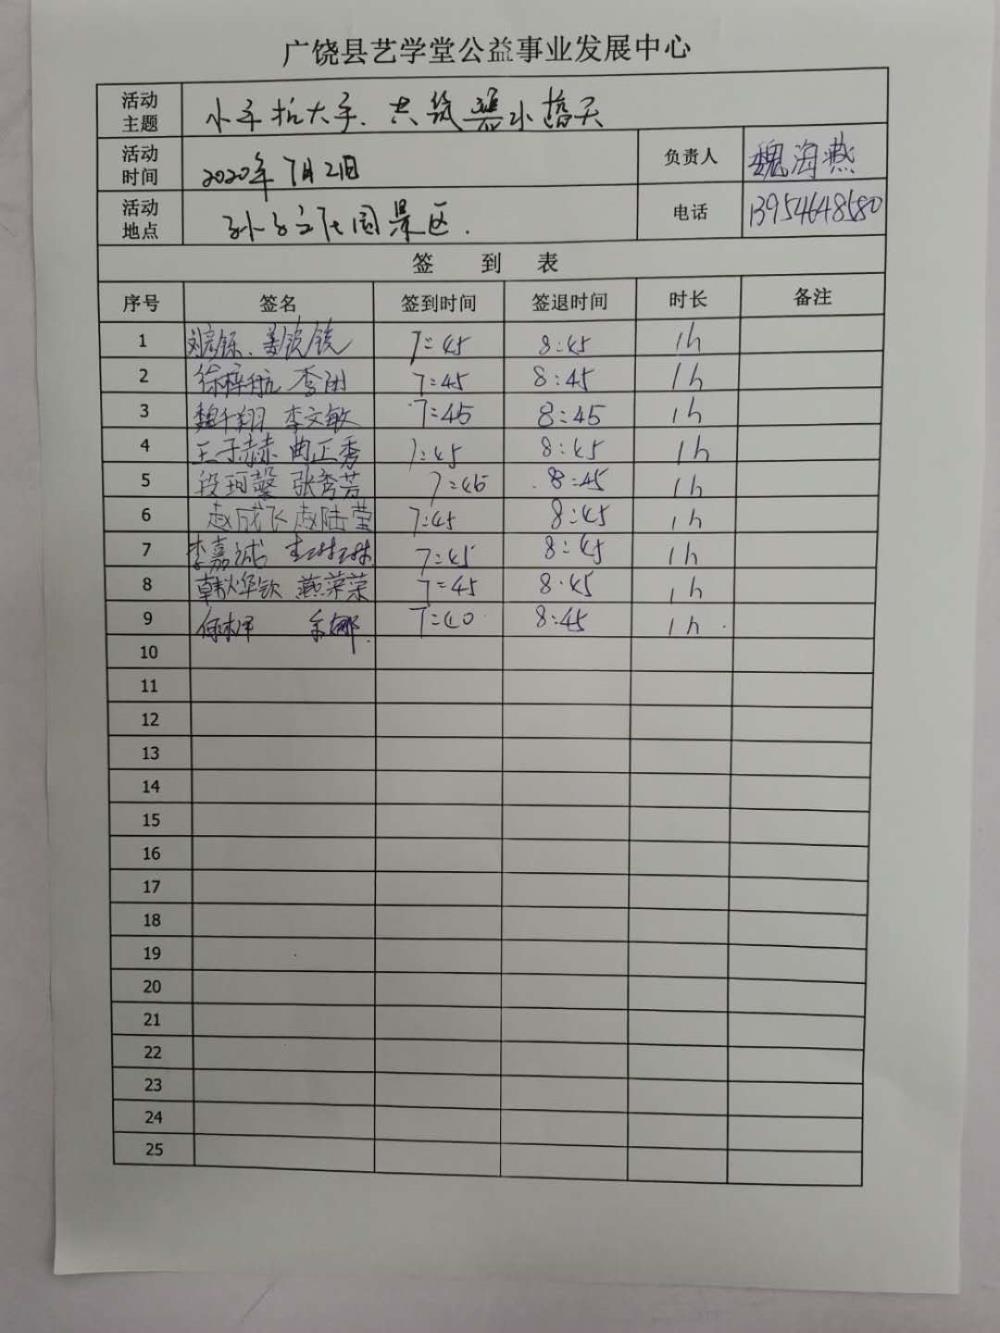 广饶县艺学堂公益事业发展中心
活动主题 小手拉大手、共筑碧水蓝天
活动时间 2020年7月21日 负责人 魏海燕
活动地点 孙子文化园景区. 电话 13954648580
签 到 表
序号 签名 签到时间 签退时间 时长 备注
1 7:45 8:45 1h
2 徐梓航 李闭 7:45 8:45 1h
3 魏千翔 李文敏 7:45 8:45 1h
4 王子赫 曲正秀 7:45 8:45 1h
5 段珂馨 张秀芳 7:45 8:45 1h
6 赵成飞 赵陆莹 7:45 8:45 1h
7 李嘉诚 7:45 8:45 1h
8 韩烨钦 燕荣荣 7:45 8:45 1h
9 7:40 8:45 1h
10
11
12
13
14
15
16
17
18
19
20
21
22
23
24
25